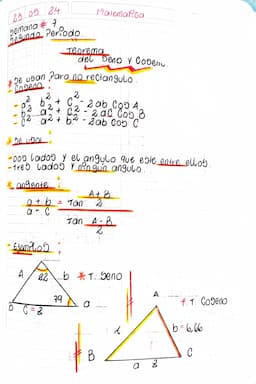 09 09 24 Matematica
Semana # 7
Segundo Período
Teorema
del Seno y Coseno
* se usan para no rectangulo.
- Coseno:
- a² b² + c² - 2ab Cos A
- b² a² + c² - 2ac Cos B
- c² a² + b² - 2ab Cos C
* se usa:
- Dos lados y el angulo que este entre ellos.
- tres lados y ningun angulo.
* tangente:
a + b = Tan A+B
a - c 2
Tan A - B
2
- Ejemplos:
A 82 b * T. Seno
79 a
C = 3
A * T. Coseno
b = 6,66
B a 3 C